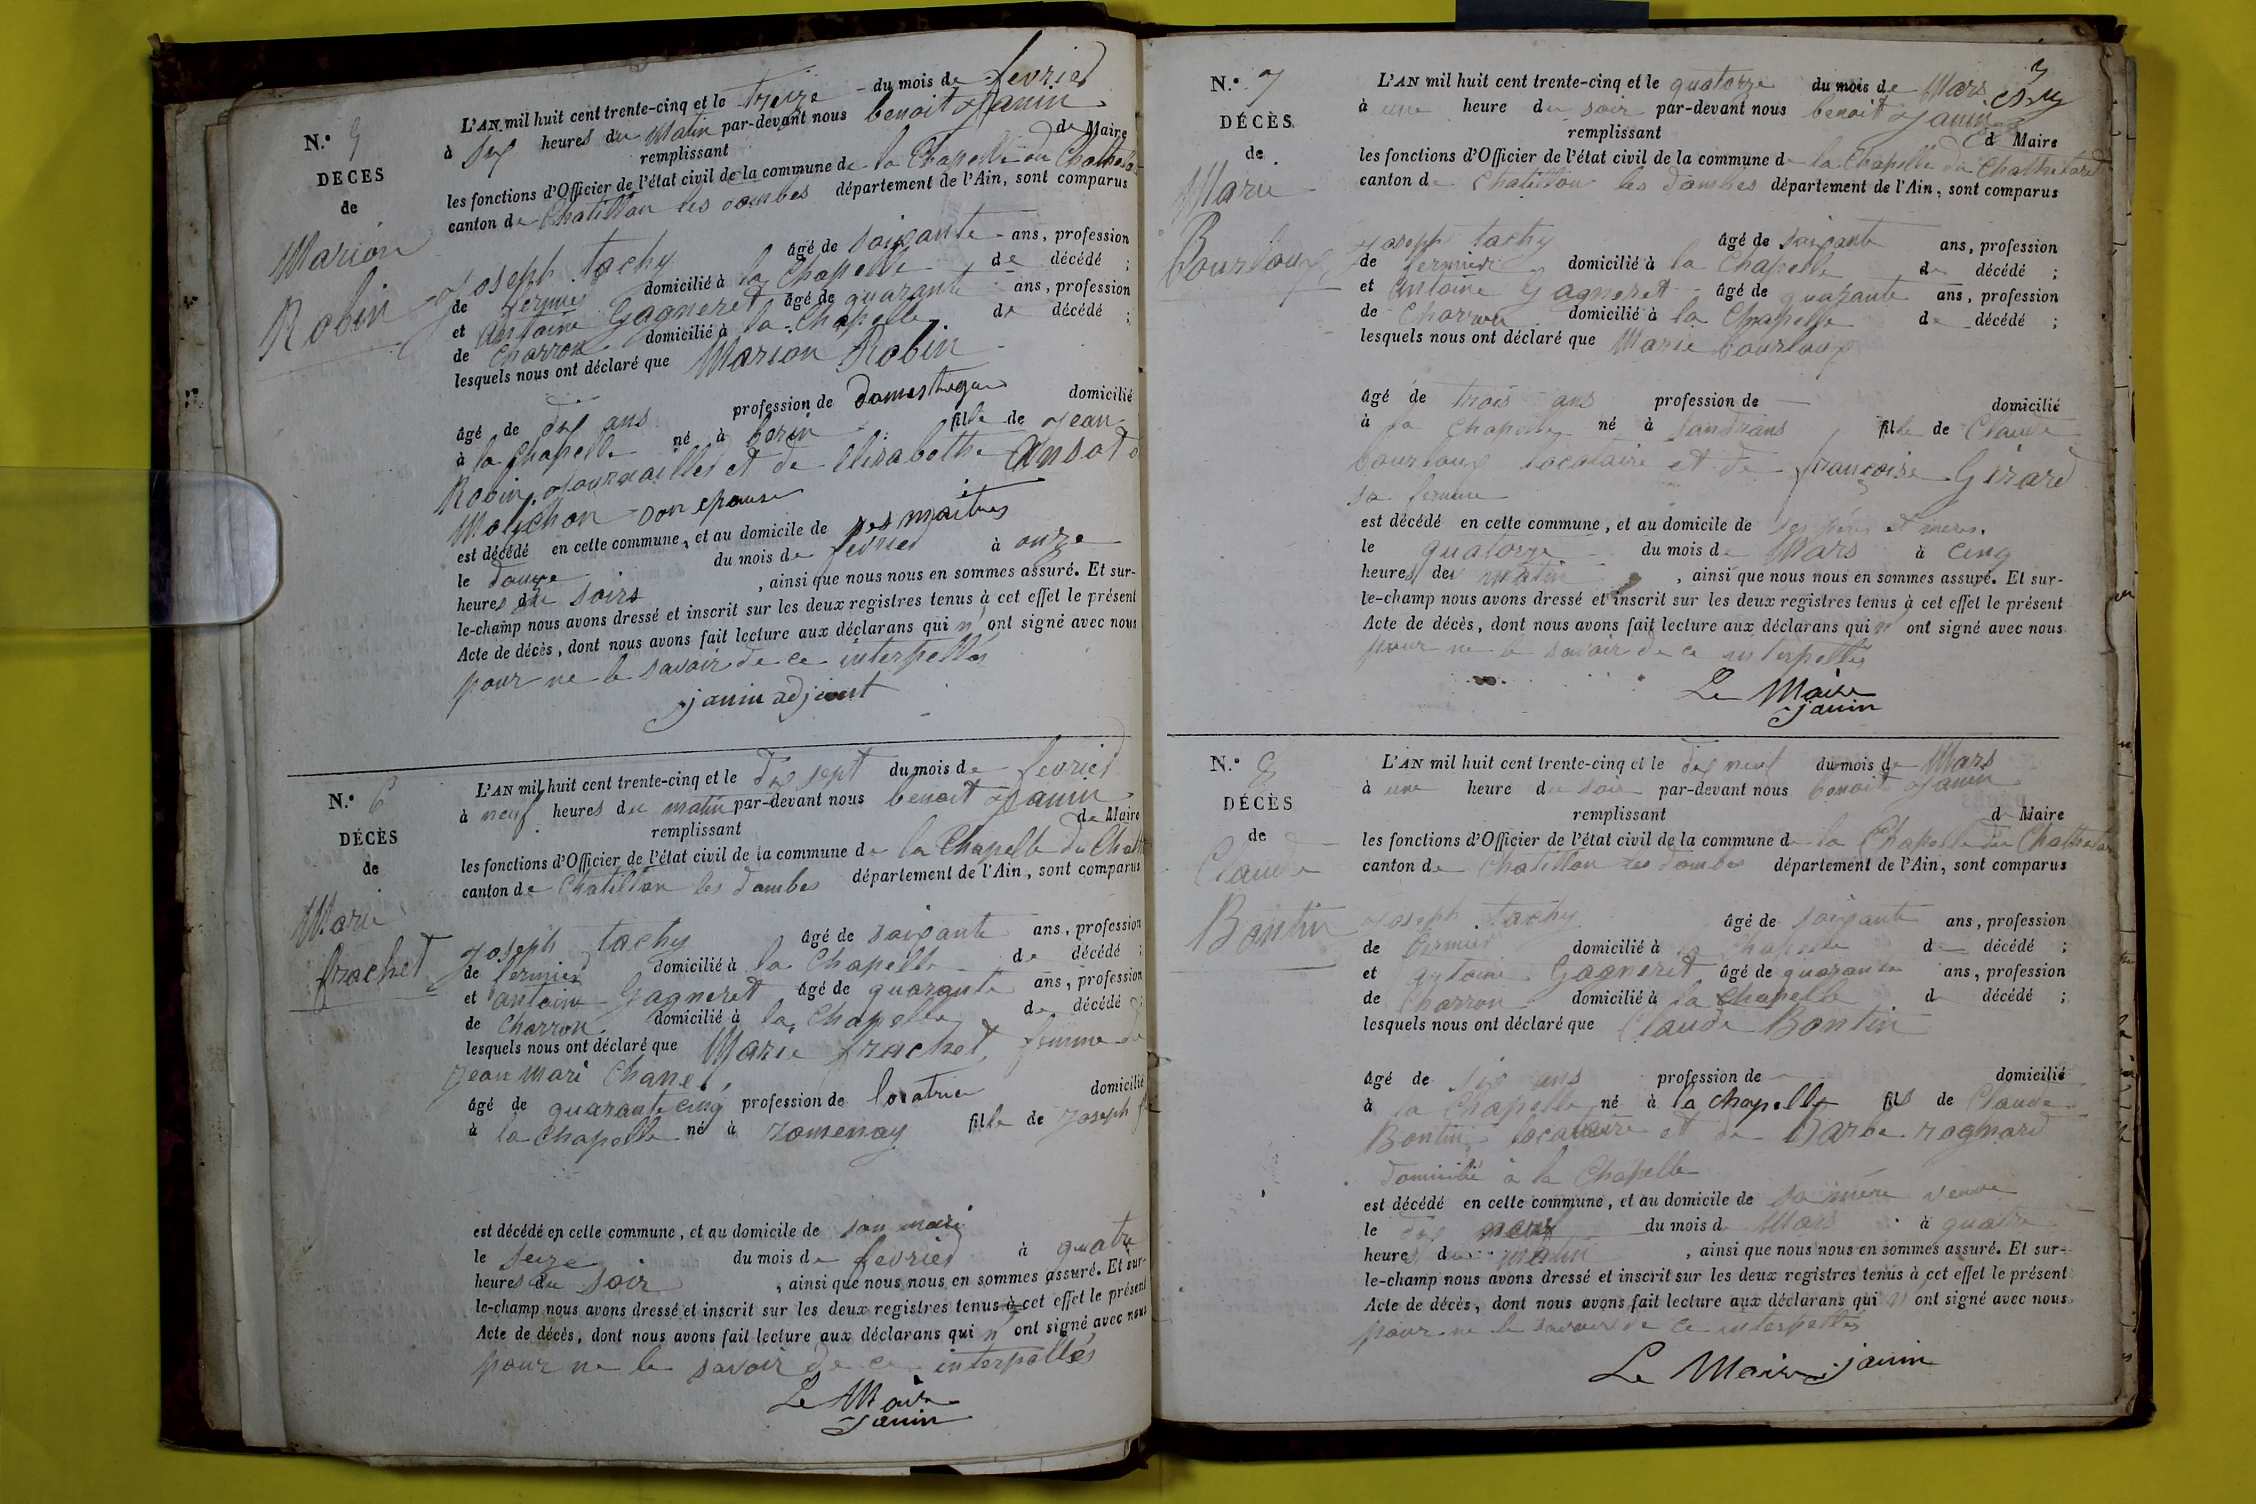 N.º 5
DÉCES
de
Marion
Robin
L'AN mil huit cent trente-cinq et le treize du mois de fevrier
à six heures du Matin par-devant nous benoit Janin
remplissant de Maire
les fonctions d'Officier de l'état civil de la commune de la Chapelle du Chathela
canton de Chatillon les dombes département de l'Ain, sont comparus
Joseph tachy âgé de soixante ans, profession
de fermier domicilié à la Chapelle de décédé ;
et antoine Gagneret âgé de quarante ans, profession
de Charron domicilié à la Chapelle de décédé ;
lesquels nous ont déclaré que Marion Robin
âgé de dix ans profession de domestique domicilié
à la Chapelle né à fille de Jean
Robin, et de Elisabethe
son epouse
est décédé en cette commune, et au domicile de ses maitres
le douze du mois de fevrier à onze
heures du soirs , ainsi que nous nous en sommes assuré. Et sur-
le-champ nous avons dressé et inscrit sur les deux registres tenus à cet effet le présent
Acte de décès, dont nous avons fait lecture aux déclarans qui n' ont signé avec nous
pour ne le savoir de ce interpellés
janin adjoint
N.º 6
DÉCÈS
de
Marie
frachet
L'AN mil huit cent trente-cinq et le dix sept du mois de fevrier
à neuf heures du matin par-devant nous benoit Janin
remplissant de Maire
les fonctions d'Officier de l'état civil de la commune de la Chapelle du Chat
canton de Chatillon les dombes département de l'Ain, sont comparus
Joseph tachy âgé de soixante ans, profession
de fermier domicilié à la Chapelle de décédé ;
et antoine Gagneret âgé de quarante ans, profession
de Charron domicilié à la Chapelle de décédé ;
lesquels nous ont déclaré que Marie frachet, femme de
Jean mari Chanel,
âgé de quarante cinq profession de locatrice domicilié
à la Chapelle né à romenay fille de Joseph
est décédé en cette commune, et au domicile de son mari
le seize du mois de fevrier à quatre
heures du soir , ainsi que nous nous en sommes assuré. Et sur-
le-champ nous avons dressé et inscrit sur les deux registres tenus à cet effet le présent
Acte de décès, dont nous avons fait lecture aux déclarans qui n' ont signé avec nous
pour ne le savoir de ce interpellés
Le Maire
janin
3
N.º 7
DÉCÈS
de
Marie
Bourloux
L'AN mil huit cent trente-cinq et le quatorze du mois de Mars
à une heure du soir par-devant nous benoit Janin
remplissant d Maire
les fonctions d'Officier de l'état civil de la commune de la Chapelle du Chathelard
canton de Chatillon les dombes département de l'Ain, sont comparus
Joseph tachy âgé de soixante ans, profession
de fermier domicilié à la Chapelle de décédé ;
et antoine Gagneret âgé de quarante ans, profession
de Charron domicilié à la Chapelle de décédé ;
lesquels nous ont déclaré que Marie bourloux
âgé de trois ans profession de domicilié
à la Chapelle né à Sandrans fille de Claude
bourloux locataire et de françoise Girard
sa femme
est décédé en cette commune, et au domicile de ses pères et meres.
le quatorze du mois de Mars à cinq
heures de matin , ainsi que nous nous en sommes assuré. Et sur-
le-champ nous avons dressé et inscrit sur les deux registres tenus à cet effet le présent
Acte de décès, dont nous avons fait lecture aux déclarans qui n' ont signé avec nous
pour ne le savoir de ce interpellés
Le Maire
janin
N.º 8
DÉCÈS
de
Claude
Bontin
L'AN mil huit cent trente-cinq et le dix neuf du mois de Mars
à une heure du soir par-devant nous benoit Janin
remplissant d Maire
les fonctions d'Officier de l'état civil de la commune de la Chapelle du Chathelar
canton de Chatillon les dombes département de l'Ain, sont comparus
Joseph tachy âgé de soixante ans, profession
de fermier domicilié à la chapelle d décédé ;
et antoine Gagneret âgé de quarante ans, profession
de Charron domicilié à la Chapelle d décédé ;
lesquels nous ont déclaré que Claude Bontin
âgé de six ans profession de domicilié
à la Chapelle né à la chapelle fils de Claude
Bontin locataire et de Barbe rognard
domicilié à la Chapelle
est décédé en cette commune, et au domicile de sa mère veuve
le dix neuf du mois d Mars à quatre
heures du matin , ainsi que nous nous en sommes assuré. Et sur-
le-champ nous avons dressé et inscrit sur les deux registres tenus à cet effet le présent
Acte de décès, dont nous avons fait lecture aux déclarans qui n' ont signé avec nous
pour ne le savoir de ce interpellés
Le Maire janin